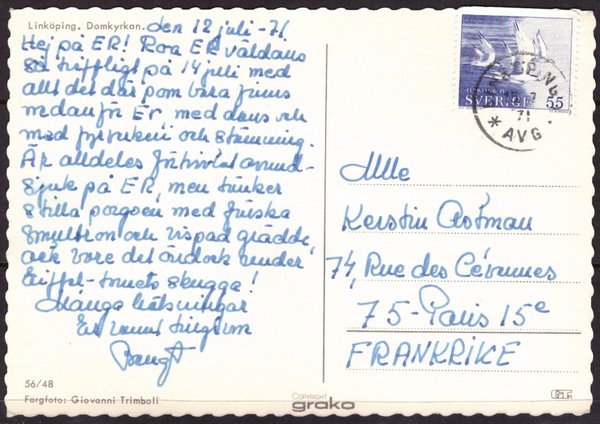 Linköping. Domkyrkan.
den 12 juli -71
Hej på ER! Roa ER väldans
så triffligt på 14 juli med
allt det där som bara finns
nedanför Er, med dans och
med fyrverkeri och stämning.
Är alldeles avund-
sjuk på ER, men tänker
stilla sorgsen med friska
smultron och vispad grädde,
ack vore det ändock under
Eiffel-tornets skugga!
Många hälsningar
Er vanne
Bengt
56/48
Fargfoto: Giovanni Trimboli
COPYRIGHT
grako
SVERIGE 55
71
* AVG. *
Mlle
Kerstin Östman
74, Rue des Cévennes
75-Paris 15e
FRANKRIKE